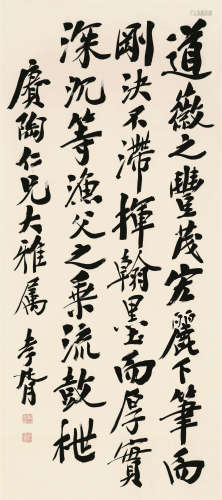 道薇之豐茂宏麗下筆而
剛決不滯揮翰墨而厚實
深沉等漁父之乘流鼓枻
賡陶仁兄大雅属 孝胥